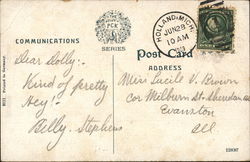 COMMUNICATIONS
PCK
SERIES
Post Card
ADDRESS
HOLLAND, MICH.
JUN 28
10 AM
Dear Dolly:-
Kind of pretty
Hey!
Ally. Stephens
Miss Lucile V. Brown
Cor Milburn St. Sheridan
Evanston
Ill
Printed in Germany